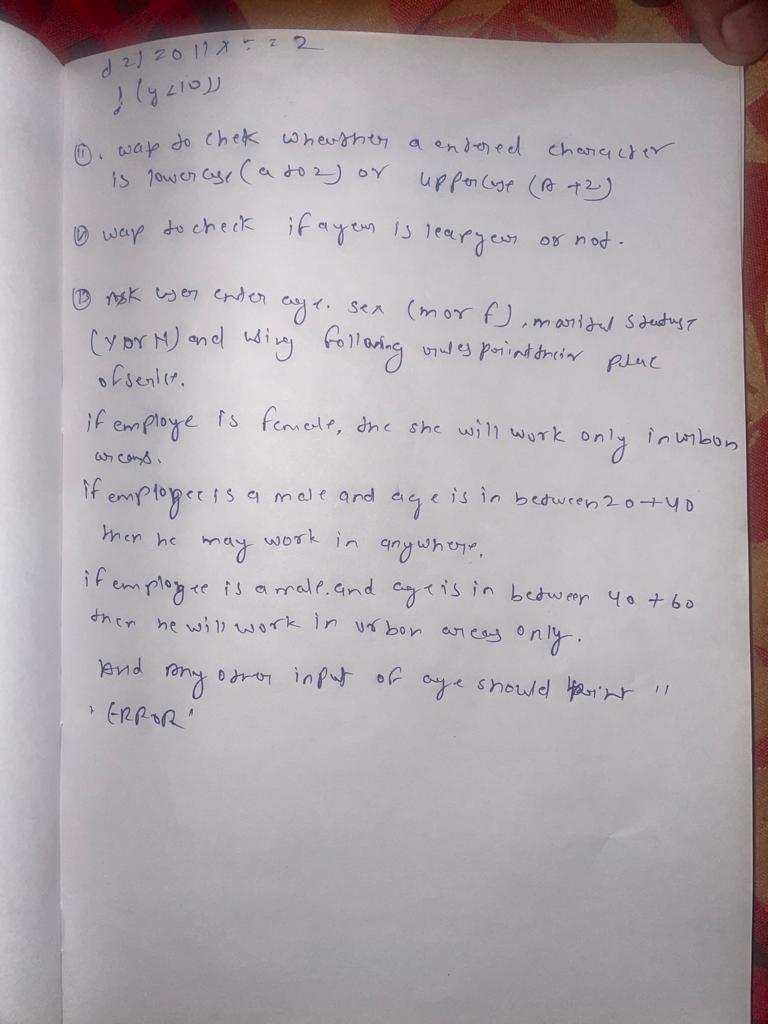 d 2) 20 || x == 2
! (y <10))
11. wap to chek wheather a entered character
is lowercase (a to z) or uppercase (A to z)
12 wap to check if a year is leapyear or not.
13 Ask user enter age. sex (m or f), marital status
(Y or N) and using following rules point their place
of service.
if employe is female, the she will work only in urbon
areas.
if employee is a male and age is in between 20 to 40
then he may work in anywhere.
if employee is a male. and age is in between 40 to 60
then he will work in urbon areas only.
And any other input of age should print "
' ERROR '